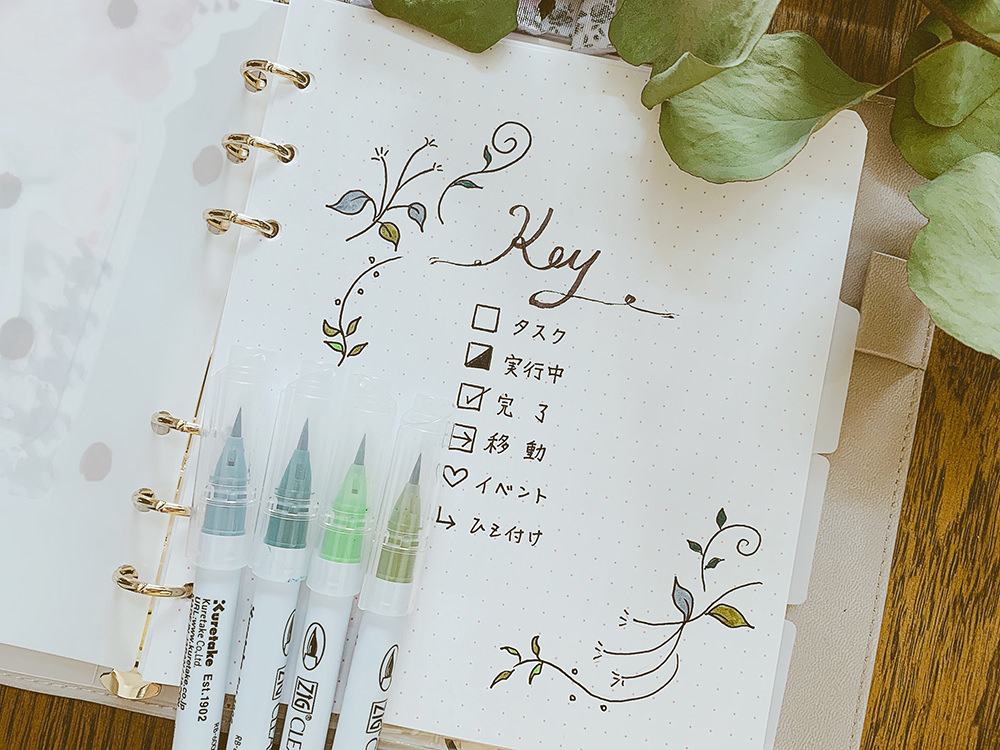 Key
タスク
実行中
完了
移動
イベント
ひも付け
Kuretake
Kuretake Co.,Ltd Est.1902
URL:www.kuretake.co.jp
ZIG
CLE
ZIG